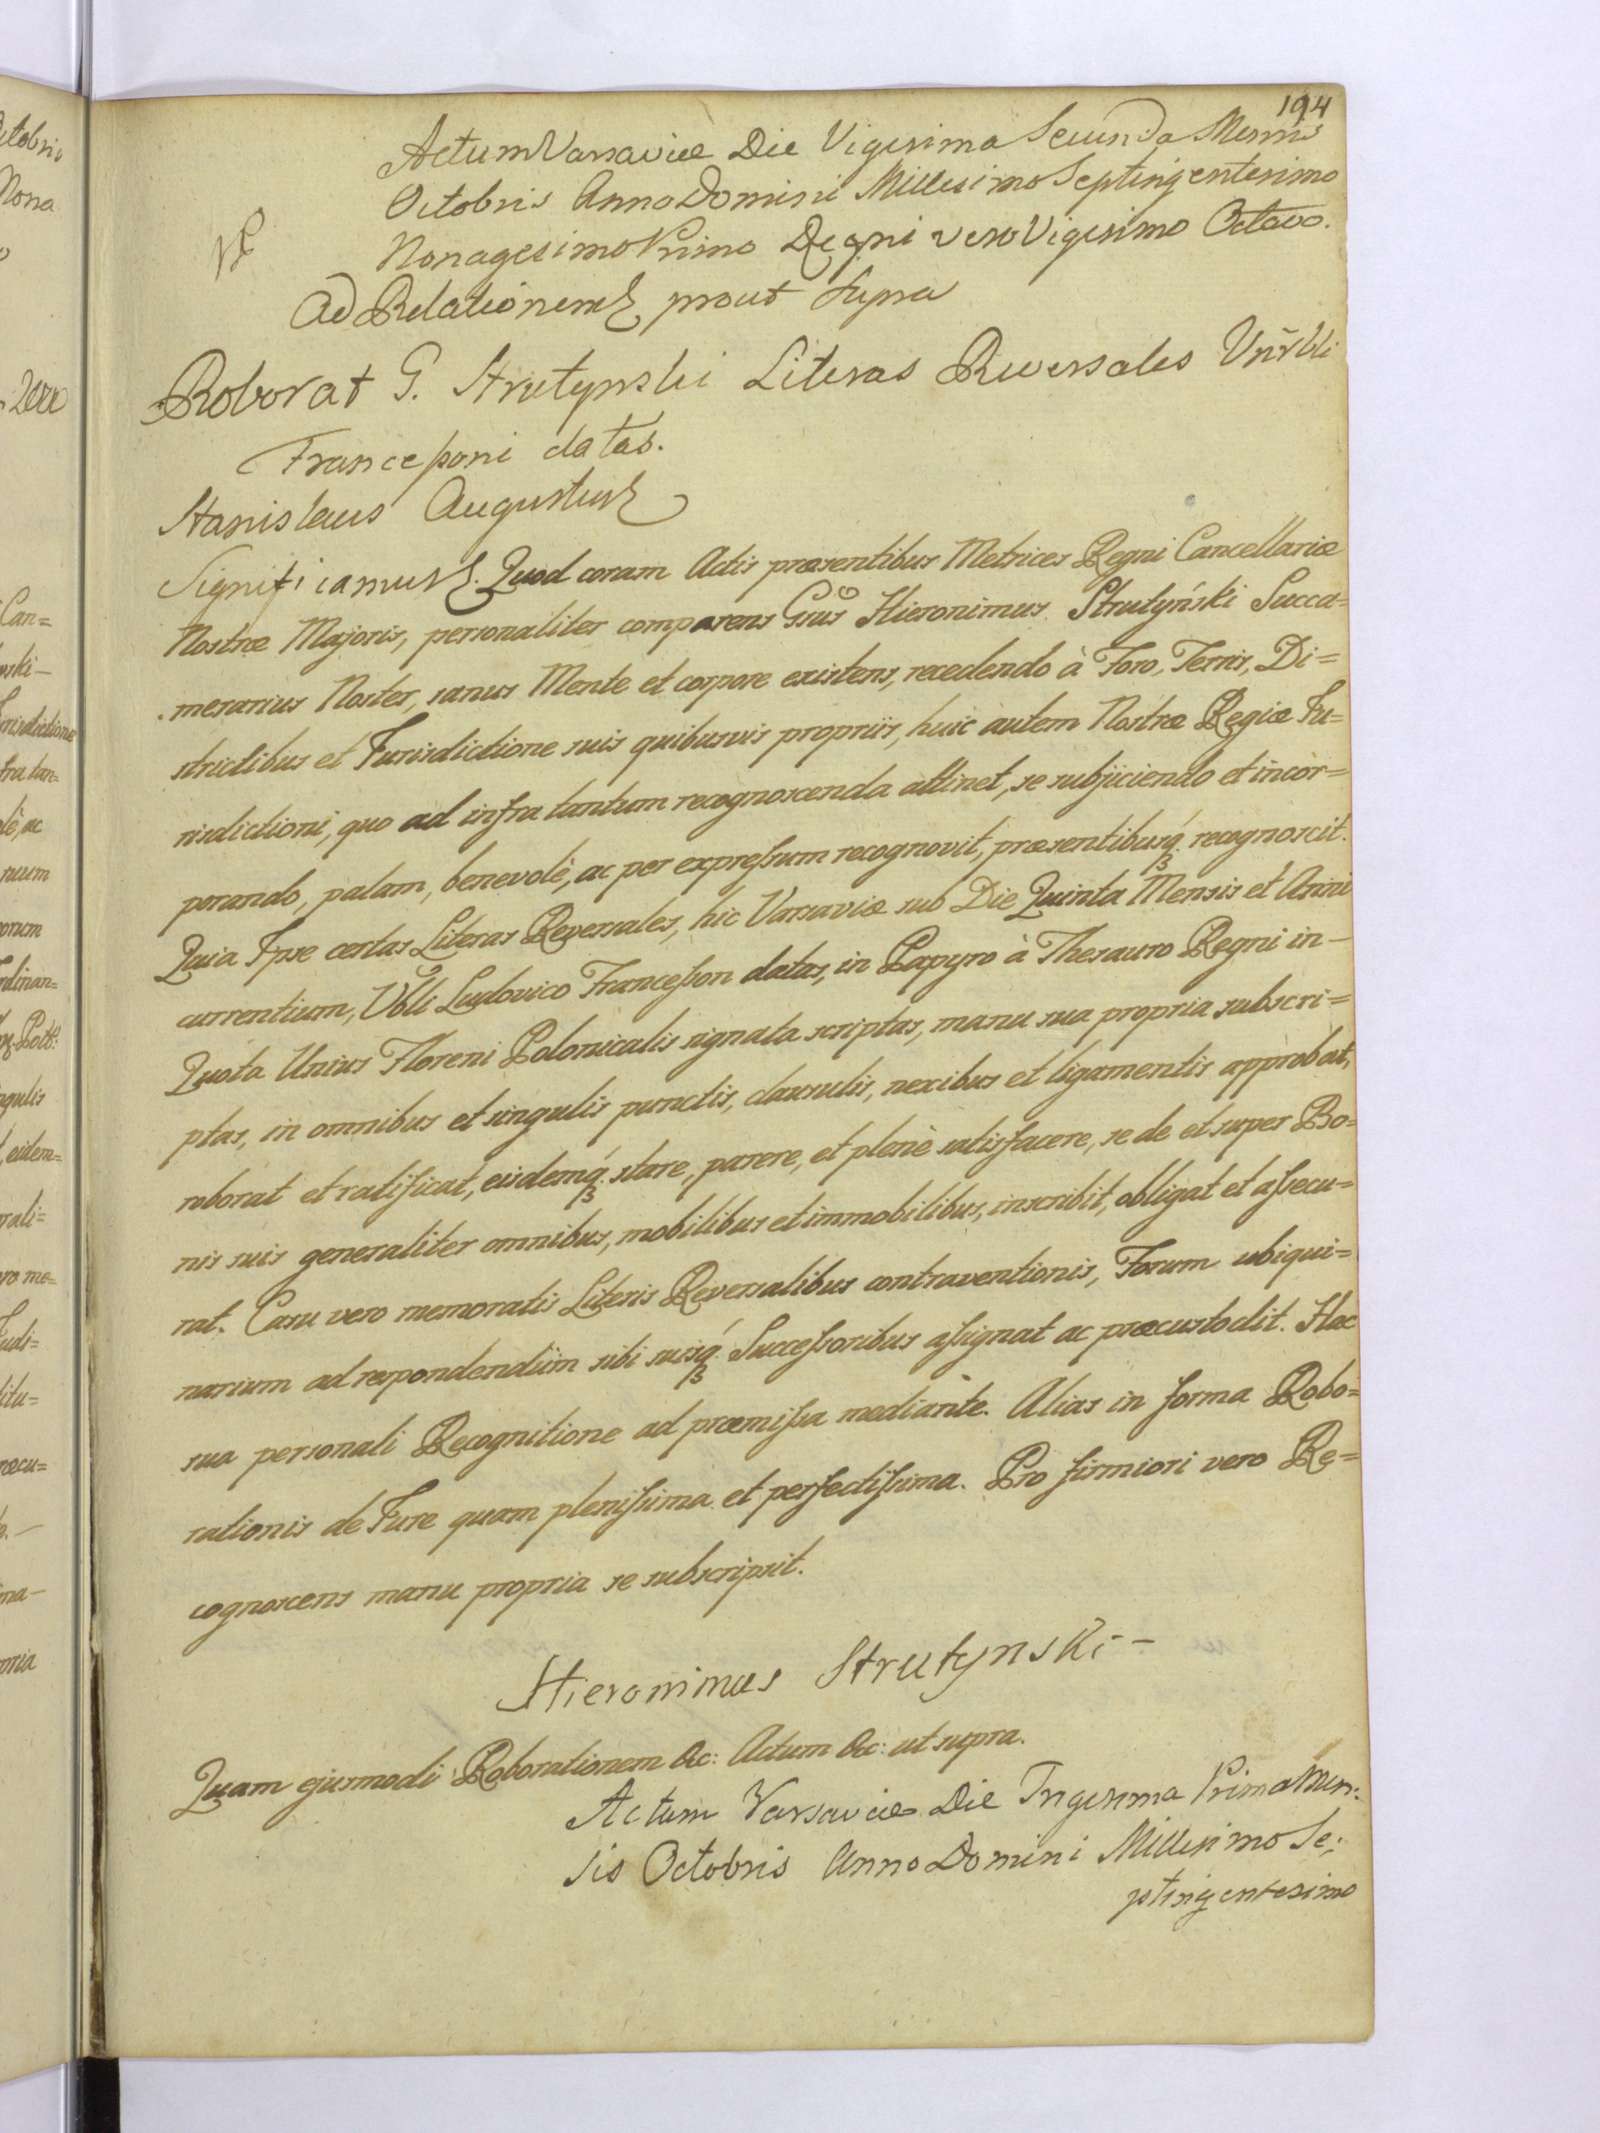 194
Actum Varsaviæ Die Vigesima Secunda Mensis
Octobris Anno Domini Millesimo Septingentesimo
Nonagesimo Primo Regni vero Vigesimo Octavo.
Ad Relationem prout supra
Roborat G. Strutynski Literas Reversales
Francessoni datas.
Stanislaus Augustus
Significamus. Quod coram Actis præsentibus Metrices Regni Cancellariæ
Nostræ Majoris, personaliter comparens Gsus Hieronimus Strutyński Succa=
merarius Noster, sanus Mente et corpore existens, recedendo à Foro, Terris, Di=
strictibus et Jurisdictione suis quibusvis propriis, huic autem Nostræ Regiæ Ju=
risdictioni, quo ad infra tantum recognoscenda attinet, se subjiciendo et incor=
porando, palam, benevolè, ac per expressum recognovit, præsentibusq́ recognoscit.
Quia Ipse certas Literas Reversales, hic Varsaviæ sub Die Quinta Mensis et Anni
currentium, Vbli Ludovico Francesson datas, in Papyro à Thesauro Regni in-
Quota Unius Floreni Polonicalis signata scriptas, manu sua propria subscri=
ptas, in omnibus et singulis punctis, clausulis, nexibus et ligamentis approbat,
roborat et ratificat, eisdemq́ stare, parere, et plenè satisfacere, se de et super Bo=
nis suis generaliter omnibus, mobilibus et immobilibus, inscribit, obligat et assecu=
rat. Casu vero memoratis Literis Reversalibus contraventionis, Forum ubiqui=
narium ad respondendum sibi suisq́ Successoribus assignat ac præcustodit. Hac
sua personali Recognitione ad præmissa mediante. Alias in forma Robo=
rationis de Jure quam plenissima et perfectissima. Pro firmiori vero Re=
cognoscens manu propria se subscripsit.
Hieronimus Strutynski -
Quam ejusmodi Roborationem &c: Actum &c: ut supra.
Actum Varsaviæ Die Trigesima Prima Men:
sis Octobris Anno Domini Millesimo Se:
ptingentesimo